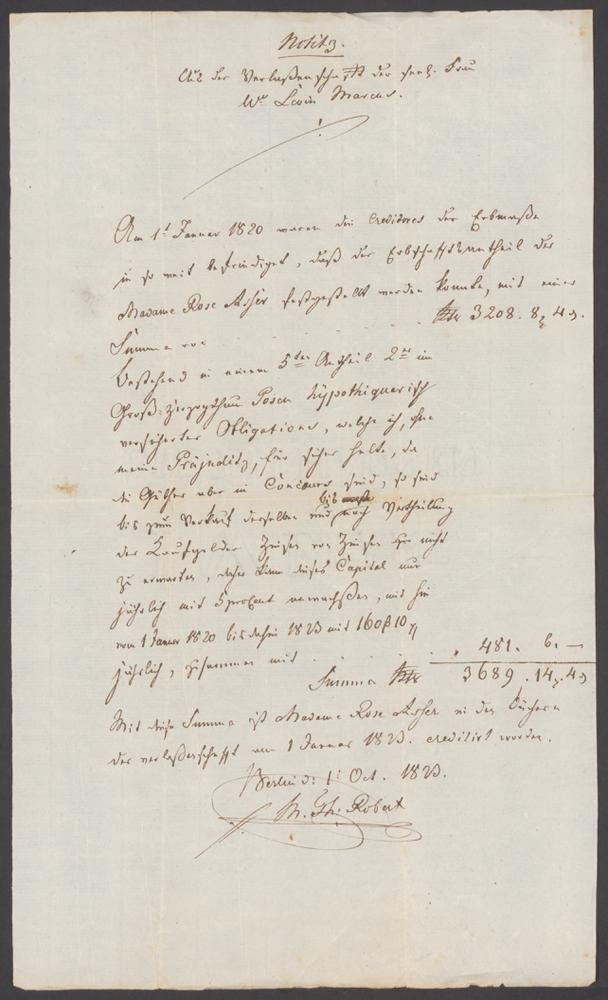 Notitz.
Aus der Verlaßenschafft der seel. Frau
Wwe Levin Marcus.
Am 1t Januar 1820 waren die Creditores der Erbmaße
in so weit befriediget, daß der Erbschafftsantheil der
Madame Rose Asser festgestellt werden konnte, mit einer
Summa von . . . . . rtlr 3208. 8. 4 d.
bestehend in einem 5ten Antheil 2er im
Groß-Herzogthum Posen hÿpothiquarisch
versicherter Obligationen, welche ich, ohne
meine Präjuditz, für sicher halte, da
die Güther aber in Concours sind, so sind
bis zum Verkauf derselben und bis nach Vertheilung
der Kaufgelder Zinsen von Zinsen hier nicht
zu erwarten, daher kann dieses Capital nur
jährlich mit 5 procent anwachsen, mit hin
vom 1 Januar 1820 bis dahin 1823 mit 160 β 10
jährlich, zusammen mit . . . . 481. 6. —
Summa rtlr 3689. 14. 4 d
Mit dieser Summa ist Madame Rose Asser in den Büchern
der verlaßenschafft am 1 Januar 1823. creditirt worden.
Berlin d: 1t Oct. 1823.
M. Th. Robert